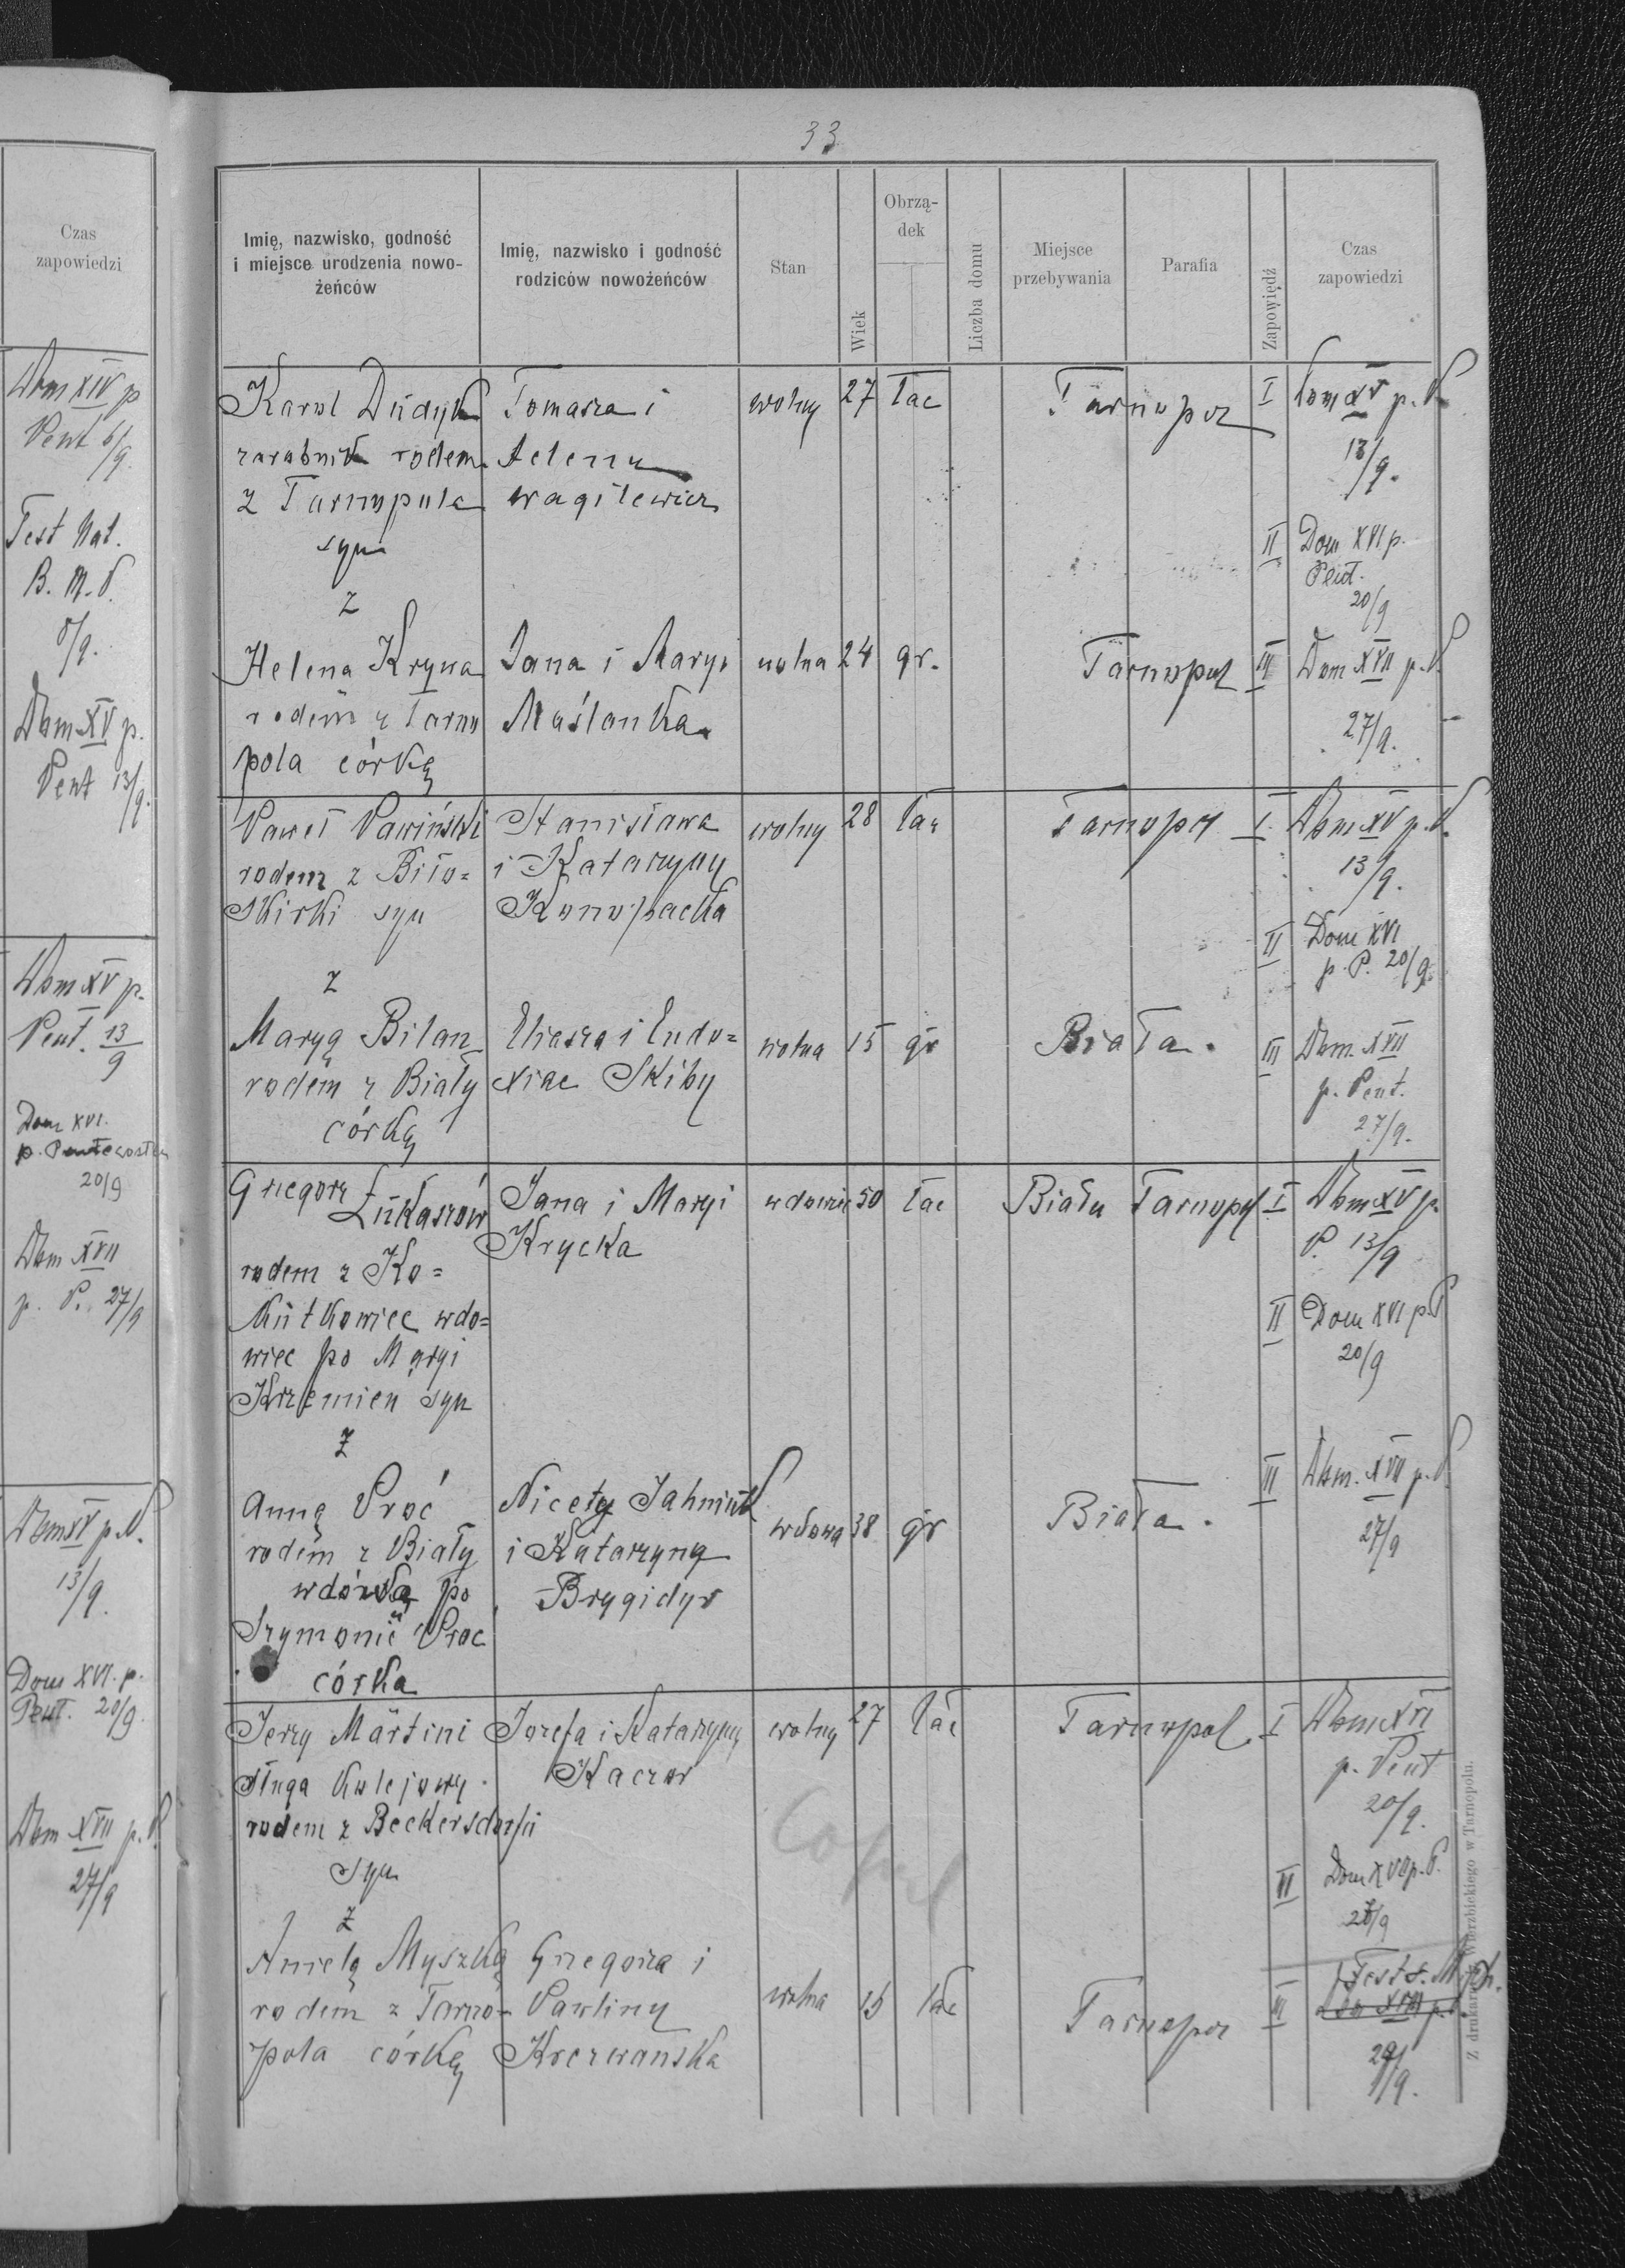 33
Czas
zapowiedzi
Dom XIV p
Pent 6/9.
Fest Nat.
B. M. V.
8/9.
Dom XV p.
Pent 13/9.
Dom XV p.
Pent. 13/9
Dom XVI.
p. Pentecosten
20/9
Dom XVII
p. P. 27/9
Dom XV p. P.
13/9.
Dom XVI. p.
Pent. 20/9.
Dom XVII p. P.
27/9
Imię, nazwisko, godność
i miejsce urodzenia nowo-
żeńców
Imię, nazwisko i godność
rodziców nowożeńców
Stan
Wiek
Obrzą-
dek
Liczba domu
Miejsce
przebywania
Parafia
Zapowiedź
Czas
zapowiedzi
Karol Dudyk Tomasza i wolny 27 łac Tarnopol I Dom XV p. P.
zarobnik rodem Heleny 13/9.
z Tarnopola Wagilewicz
syn II Dom XVI p.
Pent.
z 20/9
Helena Krywa Jana i Maryi wolna 24 gr. Tarnopol III Dom XVII p. P.
rodem z Tarno Maślanka 27/9.
pola córką
Paweł Pawiński Stanisława wolny 28 łac Tarnopol I Dom XV p. P.
rodem z Biło= i Katarzyny 13/9.
skirki syn Konopacka
II Dom XVI
z p. P. 20/9
Maryą Bilan Eliasza i Eudo= wolna 15 gr Biała. III Dom. XVII
rodem z Biały xiae Skiby p. Pent.
córką 27/9.
Grzegorz Łukaszów Jana i Maryi wdowiec 50 łac Biała Tarnopol I Dom XV p.
Krycka P. 13/9
rodem z Ko=
kutkowiec wdo= II Dom XVI p. P
wiec po Maryi 20/9
Krzemień syn
z III Dom. XVII p. P.
Anną Proć Nicety Jahniuk wdowa 38 gr Biała. 27/9
rodem z Biały i Katarzyny
wdówką po Brygidyr
Szymonie Proc
córka
Jerzy Martini Jozefa i Katarzyny wolny 27 łac Tarnopol I Dom XVI
sługa kolejowy Kaczor p. Pent
rodem z Beckersdorfu 20/9.
syn Copul II Dom XVII p. P.
z 27/9
Anielą Myszką Grzegorza i wolna 15 łac Tarnopol III Fest s. Mich.
rodem z Tarno- Pawliny
pola córką Krczwańska 29/9.
Z drukarni Wierzbickiego w Tarnopolu.